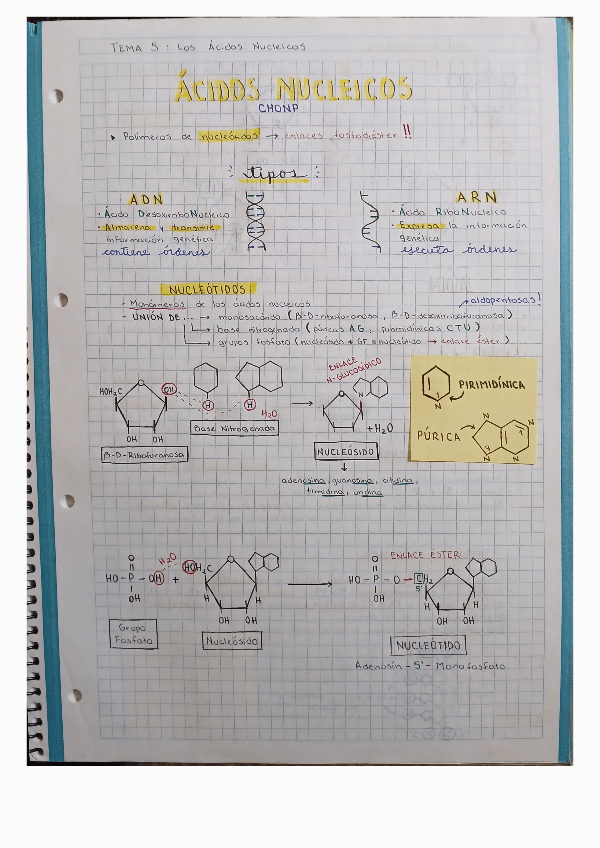 TEMA 5 : Los Ácidos Nucleicos
ÁCIDOS NUCLEICOS
CHONP
Polímeros de nucleótidos → enlaces fosfodiéster !!
tipos
ADN
• Ácido DesoxirriboNucleico
• Almacena y transmite
información genética
contiene órdenes
ARN
• Ácido RiboNucleico
• Expresa la información
genética
ejecuta órdenes
NUCLEÓTIDOS
- Monómeros de los ácidos nucleicos
aldopentosas!
- UNIÓN DE... → monosacárido (β-D-ribofuranosa, β-D-desoxirribofuranosa)
→ base nitrogenada (púricas AG, pirimidínicas CTU)
→ grupos fosfato (nucleósido + GF = nucleótido → enlace éster)
HOH₂C
O
OH
OH OH
β-D-Ribofuranosa
N
H
N
H
H₂O
Base Nitrogenada
ENLACE
N-GLUCOSÍDICO
HOH₂C
O
N
OH OH
+H₂O
NUCLEÓSIDO
adenosina, guanosina, citidina,
timidina, uridina
N
PIRIMIDÍNICA
PÚRICA
N
9
1
N
N
N
H₂O
O
HO - P - OH
OH
+
Grupo
Fosfato
HOH₂C
O
H H
OH OH
Nucleósido
ENLACE ÉSTER
O
HO - P - O - CH₂
OH
5'
O
H H
OH OH
NUCLEÓTIDO
Adenosín - 5' - Monofosfato